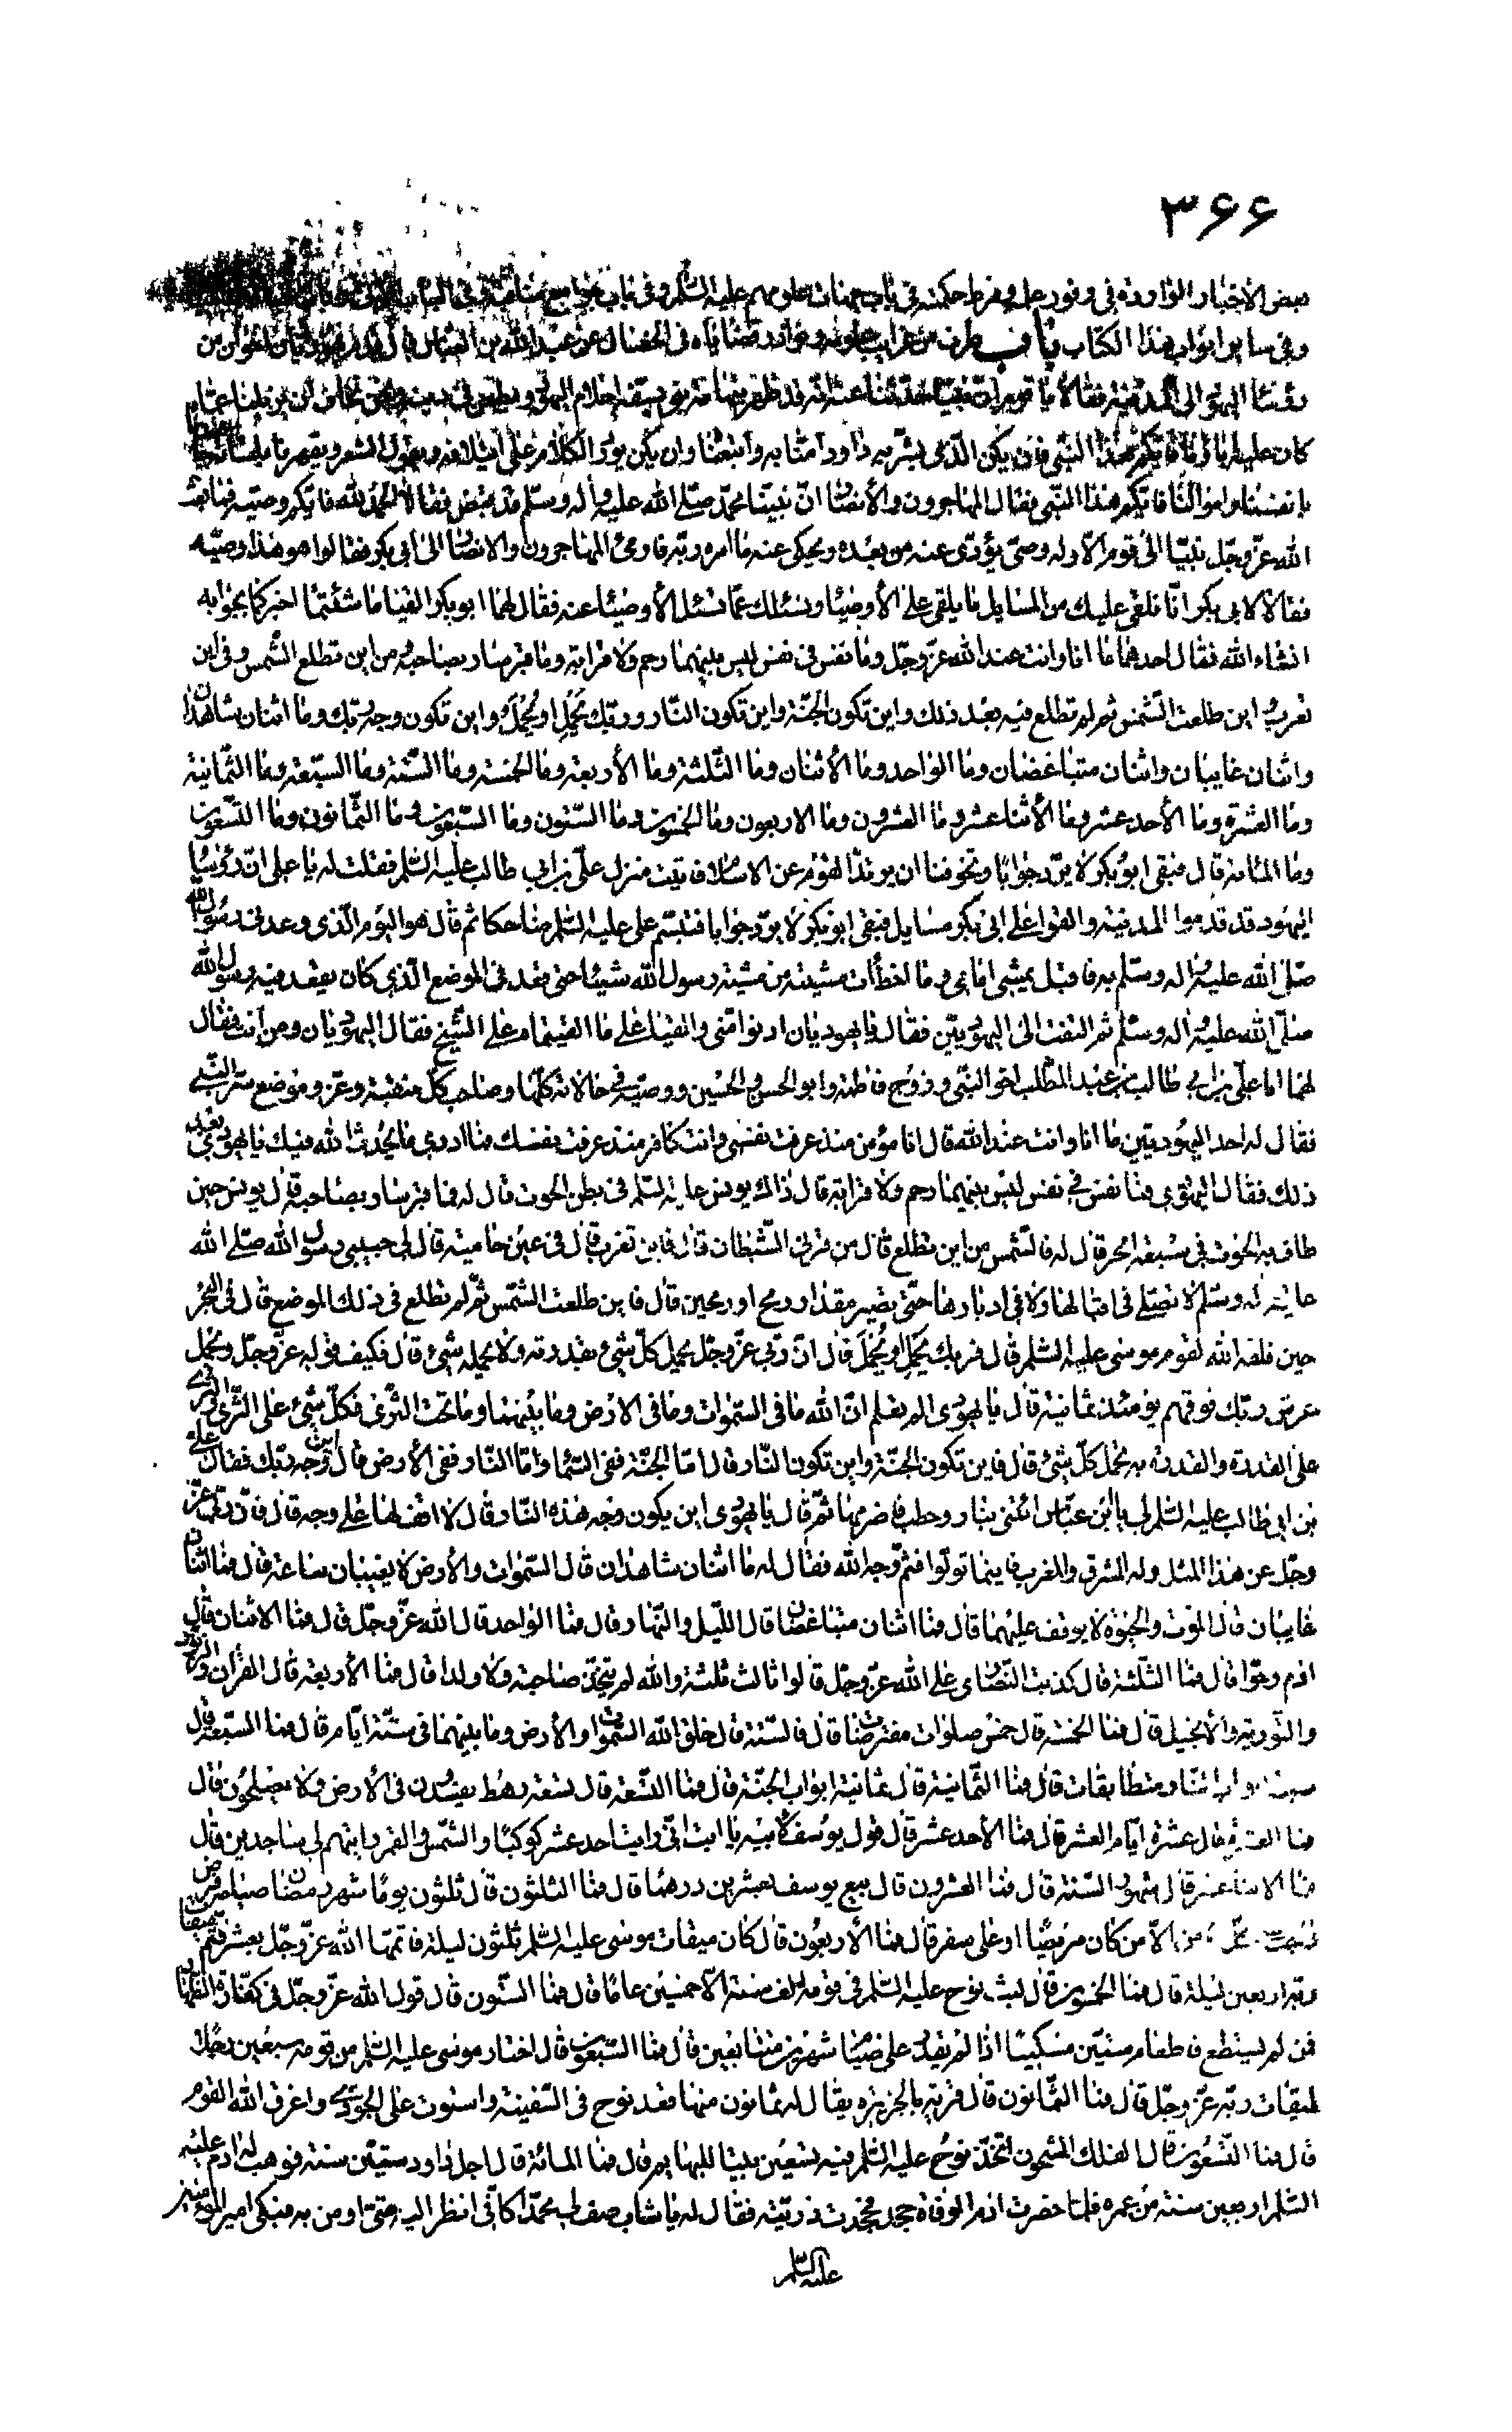 ۳۶۶
بعض الاخبار الواردة فى وفور علمه وفرط حكمته فى باب جهات علومهم عليهم السلام وفى باب جوامع مناقبه
وفى ساير ابواب هذا الكتاب باب طرف من غرايب علومه ونوادر قضاياه فى الخصال عن عبد الله بن العباس قال قدم يهوديان اخوان من
رؤسا اليهود الى المدينة فقالا يا قوم ان نبيّا حدّثنا عنه انّه قد ظهر بتهامة نبى يسفّه احلام اليهود ويطعن فى دينهم ونحن نخاف ان يزيلنا عمّا
كان عليه اباؤنا فايّكم هذا النبى فان يكن الّذى بشّر به داود امنّا به واتّبعناه وان يكن يورد الكلام على ائتلافه ويقول الشعر ويقهرنا بلسانه جاهدناه
بانفسنا واموالنا فايّكم هذا النّبى فقال المهاجرون والأنصار انّ نبيّنا محمّد صلّى الله عليه وآله وسلّم قد قبض فقالا الحمد لله فايّكم وصيّه فما بعث
الله عزّ وجلّ نبيّا الى قوم الّا وله وصىّ يؤدّى عنه من بعده ويحكى عنه ما امره ربّه فاومئ المهاجرون والانصار الى ابى بكر فقالوا هو هذا وصيّه
فقالا لابى بكر انّا نلقى عليك من المسايل ما يلقى على الأوصيا ونسئلك عمّا تسئل الأوصيئا عنه فقال لهما ابو بكر القيا ما شئتما اخبركما بجوابه
انشاء الله فقال احدهما ما انا وانت عند الله عزّ وجلّ وما نفس فى نفس ليس بينهما رحم ولا قرابة وما قبر سار بصاحبه ومن اين تطلع الشّمس وفى اين
تغرب واين طلعت الشّمس ثم لم تطلع فيه بعد ذلك واين تكون الجنّة واين تكون النّار وربّك يَحْمِل او يُحْمَل واين تكون وجه ربّك وما اثنان شاهدان
واثنان غايبان واثنان متباغضان وما الواحد وما الأثنان وما الثّلثة وما الأربعة وما الخمسة وما السّتة وما السبعة وما الثّمانية
وما العشرة وما الأحد عشر وما الأثنا عشر وما العشرون وما الاربعون وما الخمسون وما السّتون وما السّبعون وما الثّمانون وما التّسعون
وما المائة قال فبقى ابو بكر لا يردّ جوابا وتخوّفنا ان يرتدّ القوم عن الاسلام فاتيت منزل علىّ بن ابى طالب عليه السّلم فقلت له يا على انّ رؤسا
اليهود قد قدموا المدينة والقوا على ابى بكر مسايل فبقى ابو بكر لا يردّ جوابا فتبسّم على عليه السّلم ضاحكا ثم قال هو اليوم الّذى وعدنى رسول الله
صلّى الله عليه وآله وسلّم به فاقبل يمشى امامى وما اخطأت مشيته من مشية رسول الله شيئا حتى قعد فى الموضع الّذى كان يقعد فيه رسول الله
صلّى الله عليه وآله وسلّم ثم التفت الى اليهوديّين فقال يا يهوديان ادنوا منّى والقيا علىّ ما القيتماه على الشيخ فقال اليهوديان ومن انت فقال
لهما انا علىّ بن ابى طالب بن عبد المطّلب اخو النبى وزوج فاطمة وابو الحسن والحسين ووصيّه فى حالاته كلّها وصاحب كلّ منقبة وعزّ وموضع سرّ النبى
فقال له احد اليهوديّين ما انا وانت عند الله قال انا مؤمن منذ عرفت نفسى وانت كافر منذ عرفت نفسك فما ادرى ما يحدث الله فيك يا يهودى بعد
ذلك فقال اليهودى فما نفس فى نفس ليس بينهما رحم ولا قرابة قال ذاك يونس عليه السّلم فى بطن الحوت قال له فما قبر سار بصاحبه قال يونس حين
طاف به الحوت فى سبعة ابحر قال له فالشمس من اين تطلع قال من قرنى الشّيطان قال فاين تغرب قال فى عين حامية قال لى حبيبى رسول الله صلّى الله
عليه وآله وسلّم لا تصلّ فى اقبالها ولا فى ادبارها حتّى يصير مقدار رمح او رمحين قال فاين طلعت الشّمس ثمّ لم تطلع فى ذلك الموضع قال فى البحر
حين فلقه الله لقوم موسى عليه السّلم قال فربّك يَحْمِل او يُحْمَل قال انّ ربّى عزّ وجلّ يحمل كلّ شئ بقدرته ولا يحمله شئ قال فكيف قوله عزّ وجلّ ويحمل
عرش ربّك فوقهم يومئذ ثمانية قال يا يهودى الم تعلم انّ الله ما فى السّموات وما فى الارض وما بينهما وما تحت الثّرى فكلّ شئ على الثّرى والثرى
على القدرة والقدرة به تحمل كلّ شئ قال فاين تكون الجنّة واين تكون النّار قال امّا الجنّة ففى السّماء وامّا النّار ففى الأرض قال فاين وجه ربّك فقال على
بن ابى طالب عليه السّلم لى يابن عبّاس ائتنى بنار وحطب فاضرمها ثمّ قال يا يهودى اين يكون وجه هذه النّار قال لا اقف لها على وجه قال فانّ ربّى عزّ
وجلّ عن هذا المثل وله المشرق والمغرب فاينما تولّوا فثمّ وجه الله فقال له ما اثنان شاهدان قال السّموات والأرض لا يغيبان ساعة قال فما اثنان
غايبان قال الموت والحيوة لا يوقف عليهما قال فما اثنان متباغضان قال اللّيل والنّهار قال فما الواحد قال الله عزّ وجلّ قال فما الاثنان قال
ادم وحوّا قال فما الثّلثة قال كذبت النّصارى على الله عزّ وجلّ قالوا ثالث ثلثة والله لم يتّخذ صاحبة ولا ولدا قال فما الأربعة قال القرآن والزبور
والتّورية والأنجيل قال فما الخمسة قال خمس صلوات مفترضات قال فالستّة قال خلق الله السّموات والأرض وما بينهما فى ستّة ايّام قال فما السّبعة قال
سبعة ابواب النّار متطابقات قال فما الثّمانية قال ثمانية ابواب الجنّة قال فما التّسعة قال تسعة رهط يفسدون فى الأرض ولا يصلحون قال
فما العشرة قال عشرة ايّام العشر قال فما الأحد عشر قال قول يوسف لأبيه يا ابت انّى رايت احد عشر كوكبًا والشّمس والقمر رايتهم لى ساجدين قال
فما الاثنا عشر قال شهور السّنة قال فما العشرون قال بيع يوسف بعشرين درهما قال فما الثلثون قال ثلثون يومًا شهر رمضان صيامه فرض
على كلّ مؤمن الّا من كان مريضًا او على سفر قال فما الأربعون قال كان ميقات موسى عليه السّلم ثلثون ليلة فاتمّها الله عزّ وجلّ بعشر فتمّ ميقات
ربّه اربعين ليلة قال فما الخمسون قال لبث نوح عليه السّلم فى قومه الف سنة الّا خمسين عامًا قال فما السّتّون قال قول الله عزّ وجلّ فى كفّارة الظّهار
فمن لم يستطع فاطعام ستّين مسكينًا اذا لم يقدر على صيام شهرين متتابعين قال فما السّبعون قال اختار موسى عليه السّلم من قومه سبعين رجلا
لميقات ربّه عزّ وجلّ قال فما الثّمانون قال قرية بالجزيرة يقال لها ثمانون منها قعد نوح فى السّفينة واستوت على الجودى واغرق الله القوم
قال فما التّسعون قال الفلك المشحون اتّخذ نوح عليه السّلم فيه تسعين بيتا للبهايم قال فما المائة قال اجل داود ستّين سنة فوهب له ادم عليه
السّلم اربعين سنة من عمره فلمّا حضرت ادم الوفاة جحد فجحدت ذريّته فقال له يا شاب صف لى محمّدا كانّى انظر اليه حتى اومن به فبكى امير المؤمنين
عليه السّلم